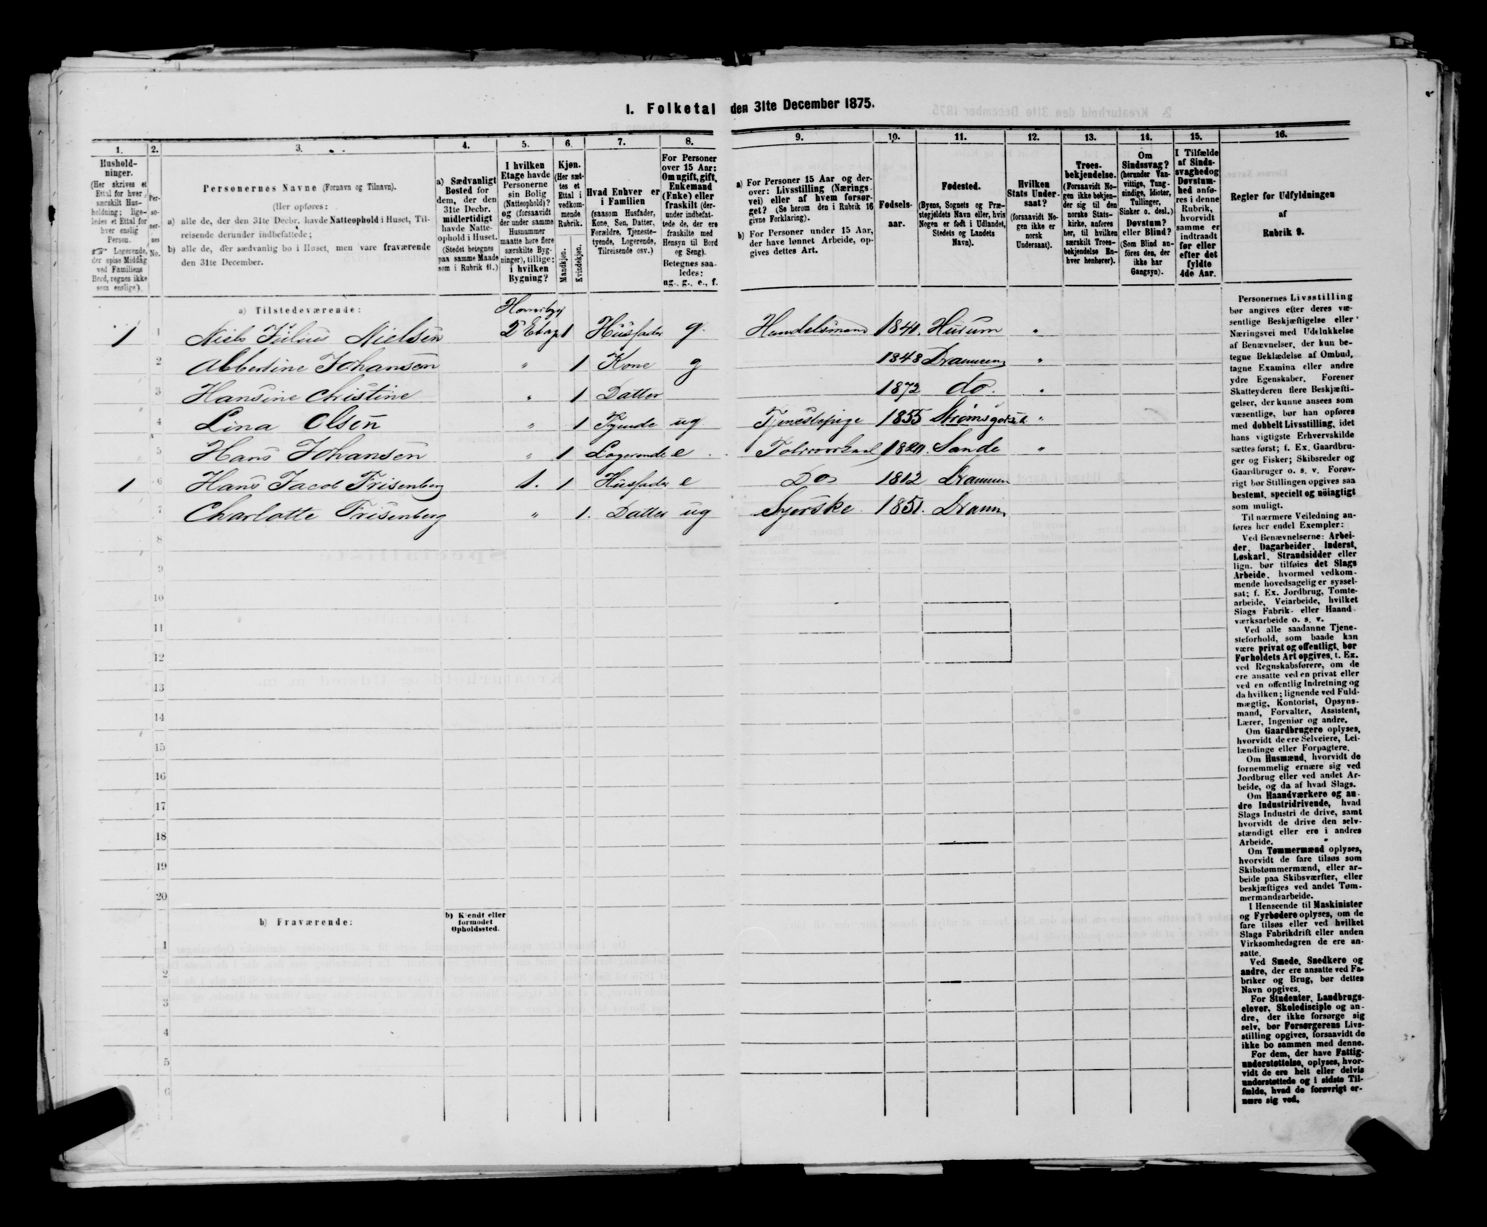 I. Folketal den 31te December 1875.
1. 2. 3. 4. 5. 6. 7. 8. 9. 10. 11. 12. 13. 14. 15. 16.
Hushold-
ninger.
(Her skrives et
Ettal for hver
særskilt Hus-
holdning; lige-
ledes et Ettal for
hver enslig
Person.
Logerende,
der spise Middag
ved Familiens
Bord, regnes ikke
som enslige).
Per-
so-
ner-
nes
No.
Personernes Navne (Fornavn og Tilnavn).
(Her opføres:
a) alle de, der den 31te Decbr. havde Natteophold i Huset, Til-
reisende derunder indbefattede;
b) alle de, der sædvanlig bo i Huset, men vare fraværende
den 31te December.
a) Sædvanligt
Bosted for
dem, der den
31te Decbr.
midlertidigt
havde Natte-
ophold i Huset.
(Stedet betegnes
paa samme Maade
som i Rubrik 11.)
I hvilken
Etage havde
Personerne
sin Bolig
(Natteophold)?
og (forsaavidt
der under samme
Husnummer
maatte høre flere
særskilte Byg-
ninger), tillige:
i hvilken
Bygning?
Kjøn.
(Her sæt-
tes et
Ettal i
vedkom-
mende
Rubrik.
Mandkjøn.
Kvindekjøn.
Hvad Enhver er
i Familien
(saasom Husfader,
Kone, Søn, Datter,
Forældre, Tjeneste-
tyende, Logerende,
Tilreisende osv.).
For Personer
over 15 Aar:
Om ugift, gift,
Enkemand
(Enke) eller
fraskilt (der-
under indbefat-
tede de, der ere
fraskilte med
Hensyn til Bord
og Seng).
Betegnes saa-
ledes:
ug., g., e., f.
a) For Personer 15 Aar og der-
over: Livsstilling (Nærings-
vei) eller af hvem forsør-
get? (Se herom den i Rubrik 16
givne Forklaring).
b) For Personer under 15 Aar,
der have lønnet Arbeide, op-
gives dettes Art.
Fødsels-
aar.
Fødested.
(Byens, Sognets og Præ-
stegjeldets Navn eller, hvis
Nogen er født i Udlandet,
Stedets og Landets
Navn).
Hvilken
Stats Under-
saat?
(forsaavidt No-
gen ikke er
norsk
Undersaat).
Troes-
bekjendelse.
(Forsaavidt No-
gen ikke bekjen-
der sig til den
norske Stats-
kirke, anføres
her, til hvilken
særskilt Troes-
bekjendelse En-
hver henhører).
Om
Sindssvag?
(herunder Van-
vittige, Tung-
sindige, Idioter,
Tullinger,
Sinker o. desl.)
Døvstum?
eller Blind?
(Som Blind an-
føres den, der
ikke har
Gangsyn).
I Tilfælde
af Sinds-
svaghed og
Døvstum-
hed anfø-
res i denne
Rubrik,
hvorvidt
samme er
indtraadt
før eller
efter det
fyldte
4de Aar.
Regler for Udfyldningen
af
Rubrik 9.
a) Tilstedeværende:
1 1 Niels Julius Nielsen 2 Etag 1 Husfader g. Handelsmand 1841. Husum "
2 Albertine Johansen " 1 Kone g 1848 Drammen "
3 Hansine Christine " 1 Datter 1872 do. "
4 Lina Olsen " 1 Tyende ug Tjenestepige 1855 "
5 Hans Johansen " 1 Logerende e Sande "
1 6 Hans Jacob Frisenberg 1. 1 Husfader e Do 1812 Drammen
7 Charlotte Frisenberg " 1. Datter ug Syerske 1851. Dramn
8
9
10
11
12
13
14
15
16
17
18
19
20
b) Fraværende:
b) Kjendt eller
formodet
Opholdssted.
1
2
3
4
5
6
Personernes Livsstilling
bør angives efter deres væ-
sentlige Beskjæftigelse eller
Næringsvei med Udelukkelse
af Benævnelser, der kun be-
tegne Beklædelse af Ombud,
tagne Examina eller andre
ydre Egenskaber. Forener
Skatteyderen flere Beskjæfti-
gelser, der kunne ansees som
væsentlige, bør han opføres
med dobbelt Livsstilling, idet
hans vigtigste Erhvervskilde
sættes først; f. Ex. Gaardbru-
ger og Fisker; Skibsreder og
Gaardbruger o. s. v. Forøv-
rigt bør Stillingen opgives saa
bestemt, specielt og nøiagtigt
som muligt.
Til nærmere Veiledning an-
føres her endel Exempler:
Ved Benævnelserne: Arbei-
der, Dagarbeider, Inderst,
Løskarl, Strandsidder eller
lign. bør tilføies det Slags
Arbeide, hvormed vedkom-
mende hovedsagelig er syssel-
sat; f. Ex. Jordbrug, Tomte-
arbeide, Veiarbeide, hvilket
Slags Fabrik- eller Haand-
værksarbeide o. s. v.
Ved alle saadanne Tjene-
steforhold, som baade kan
være privat og offentligt, bør
Forholdets Art opgives, f. Ex.
ved Regnskabsførere, om de
ere ansatte ved en privat eller
ved en offentlig Indretning og
da hvilken; lignende ved Fuld-
mægtig, Kontorist, Opsyns-
mand, Forvalter, Assistent,
Lærer, Ingeniør og andre.
Om Gaardbrugere oplyses,
hvorvidt de ere Selveiere, Lei-
lændinge eller Forpagtere.
Om Husmænd, hvorvidt de
fornemmelig ernære sig ved
Jordbrug eller ved andet Ar-
beide, og da af hvad Slags.
Om Haandværkere og an-
dre Industridrivende, hvad
Slags Industri de drive, samt
hvorvidt de drive den selv-
stændigt eller ere i andres
Arbeide.
Om Tømmermænd oplyses,
hvorvidt de fare tilsøs som
Skibstømmermænd, eller ar-
beide paa Skibsværfter, eller
beskjæftiges ved andet Tøm-
mermandsarbeide.
I Henseende til Maskinister
og Fyrbødere oplyses, om de
fare tilsøs eller ved hvilket
Slags Fabrikdrift eller anden
Virksomhedsgren de ere an-
satte.
Ved Smede, Snedkere og
andre, der ere ansatte ved Fa-
briker og Brug, bør dettes
Navn opgives.
For Studenter, Landbrugs-
elever, Skoledisciple og an-
dre, der ikke forsørge sig
selv, bør Forsørgerens Livs-
stilling opgives, forsaavidt de
ikke bo sammen med denne.
For dem, der have Fattig-
understøttelse, oplyses, hvor-
vidt de ere helt eller delvis
understøttede og i sidste Til-
fælde, hvad de forøvrigt er-
nære sig ved.